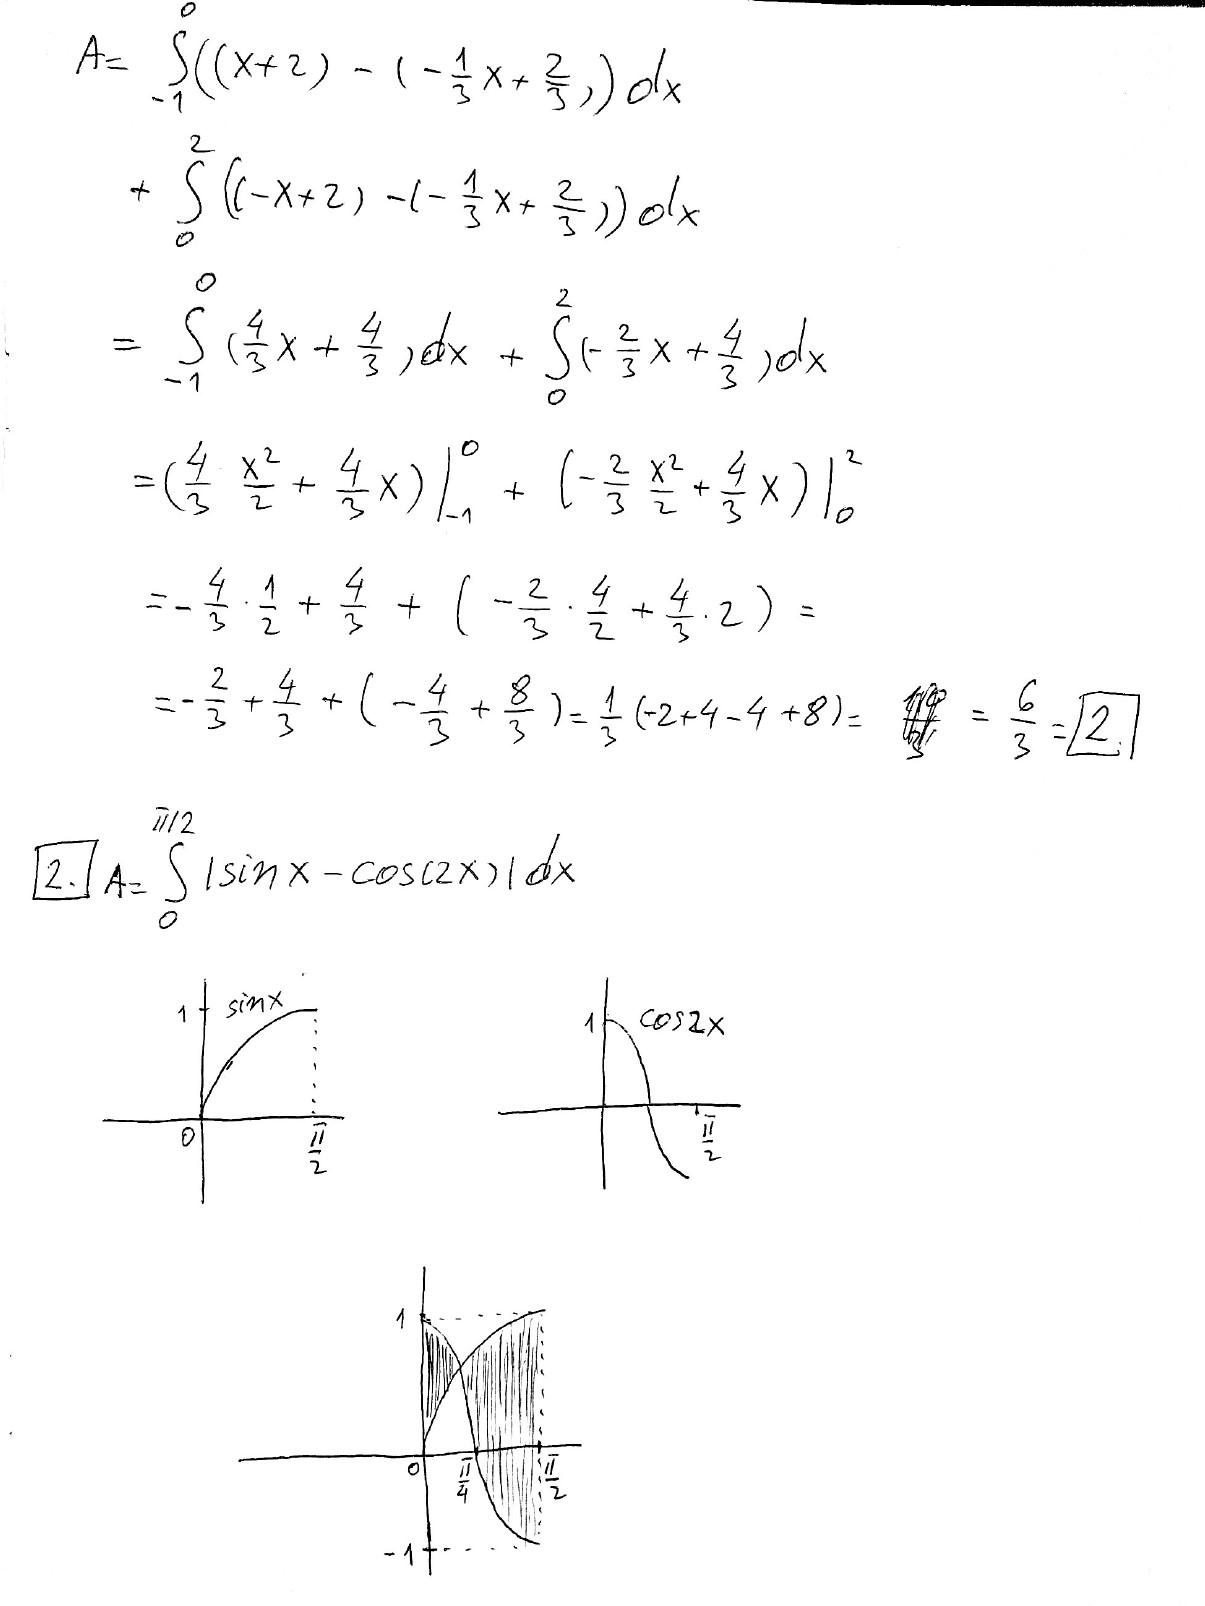 A = ∫_{-1}^{0} ((x+2) - (-1/3 x + 2/3)) dx
+ ∫_{0}^{2} ((-x+2) - (-1/3 x + 2/3)) dx
= ∫_{-1}^{0} (4/3 x + 4/3) dx + ∫_{0}^{2} (-2/3 x + 4/3) dx
= (4/3 x²/2 + 4/3 x) |_{-1}^{0} + (-2/3 x²/2 + 4/3 x) |_{0}^{2}
= -4/3 · 1/2 + 4/3 + (-2/3 · 4/2 + 4/3 · 2) =
= -2/3 + 4/3 + (-4/3 + 8/3) = 1/3 (-2+4-4+8) = = 6/3 = 2.
2. A = ∫_{0}^{π/2} |sin x - cos(2x)| dx
1 sin x
0 π/2
1 cos2x
π/2
1
0 π/4 π/2
-1